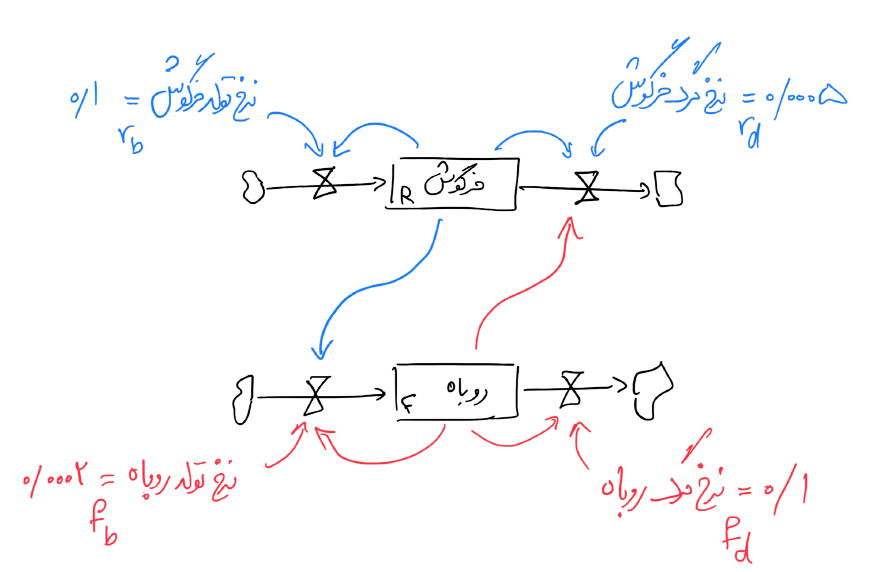 نرخ تولد خرگوش = ۰/۱
r_b
نرخ مرگ خرگوش = ۰/۰۰۰۵
r_d
خرگوش
R
روباه
F
نرخ تولد روباه = ۰/۰۰۰۲
f_b
نرخ مرگ روباه = ۰/۱
f_d